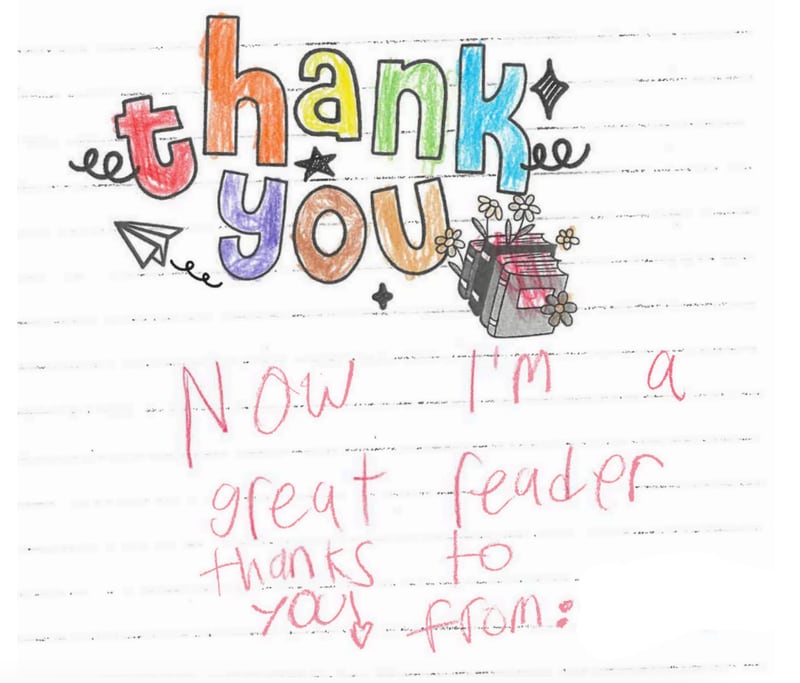 thank
you
Now I'm a
great reader
thanks to
you! from: